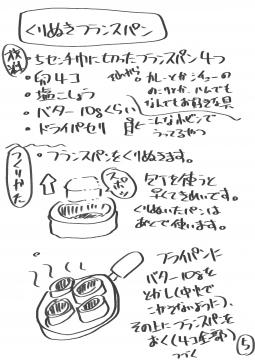 くりぬきフランスパン
材料
・5センチ巾に切ったフランスパン4つ
・卵4コ
・塩こしょう
・バター10gくらい
・ドライパセリ
・カレーとかシチューの
のこりとか、ハムでも
なんでもお好きな具
こんなんどこで
うってるやつ
つくりかた
・フランスパンをくりぬきます。
スポッ
包丁を使うと
早くてきれいです。
くりぬいたパンは
あとで使います。
フライパンに
バター10gを
とかし(中火で
こがさないように)、
その上にフランスパンを
おく(4コ全部)
つづく
5